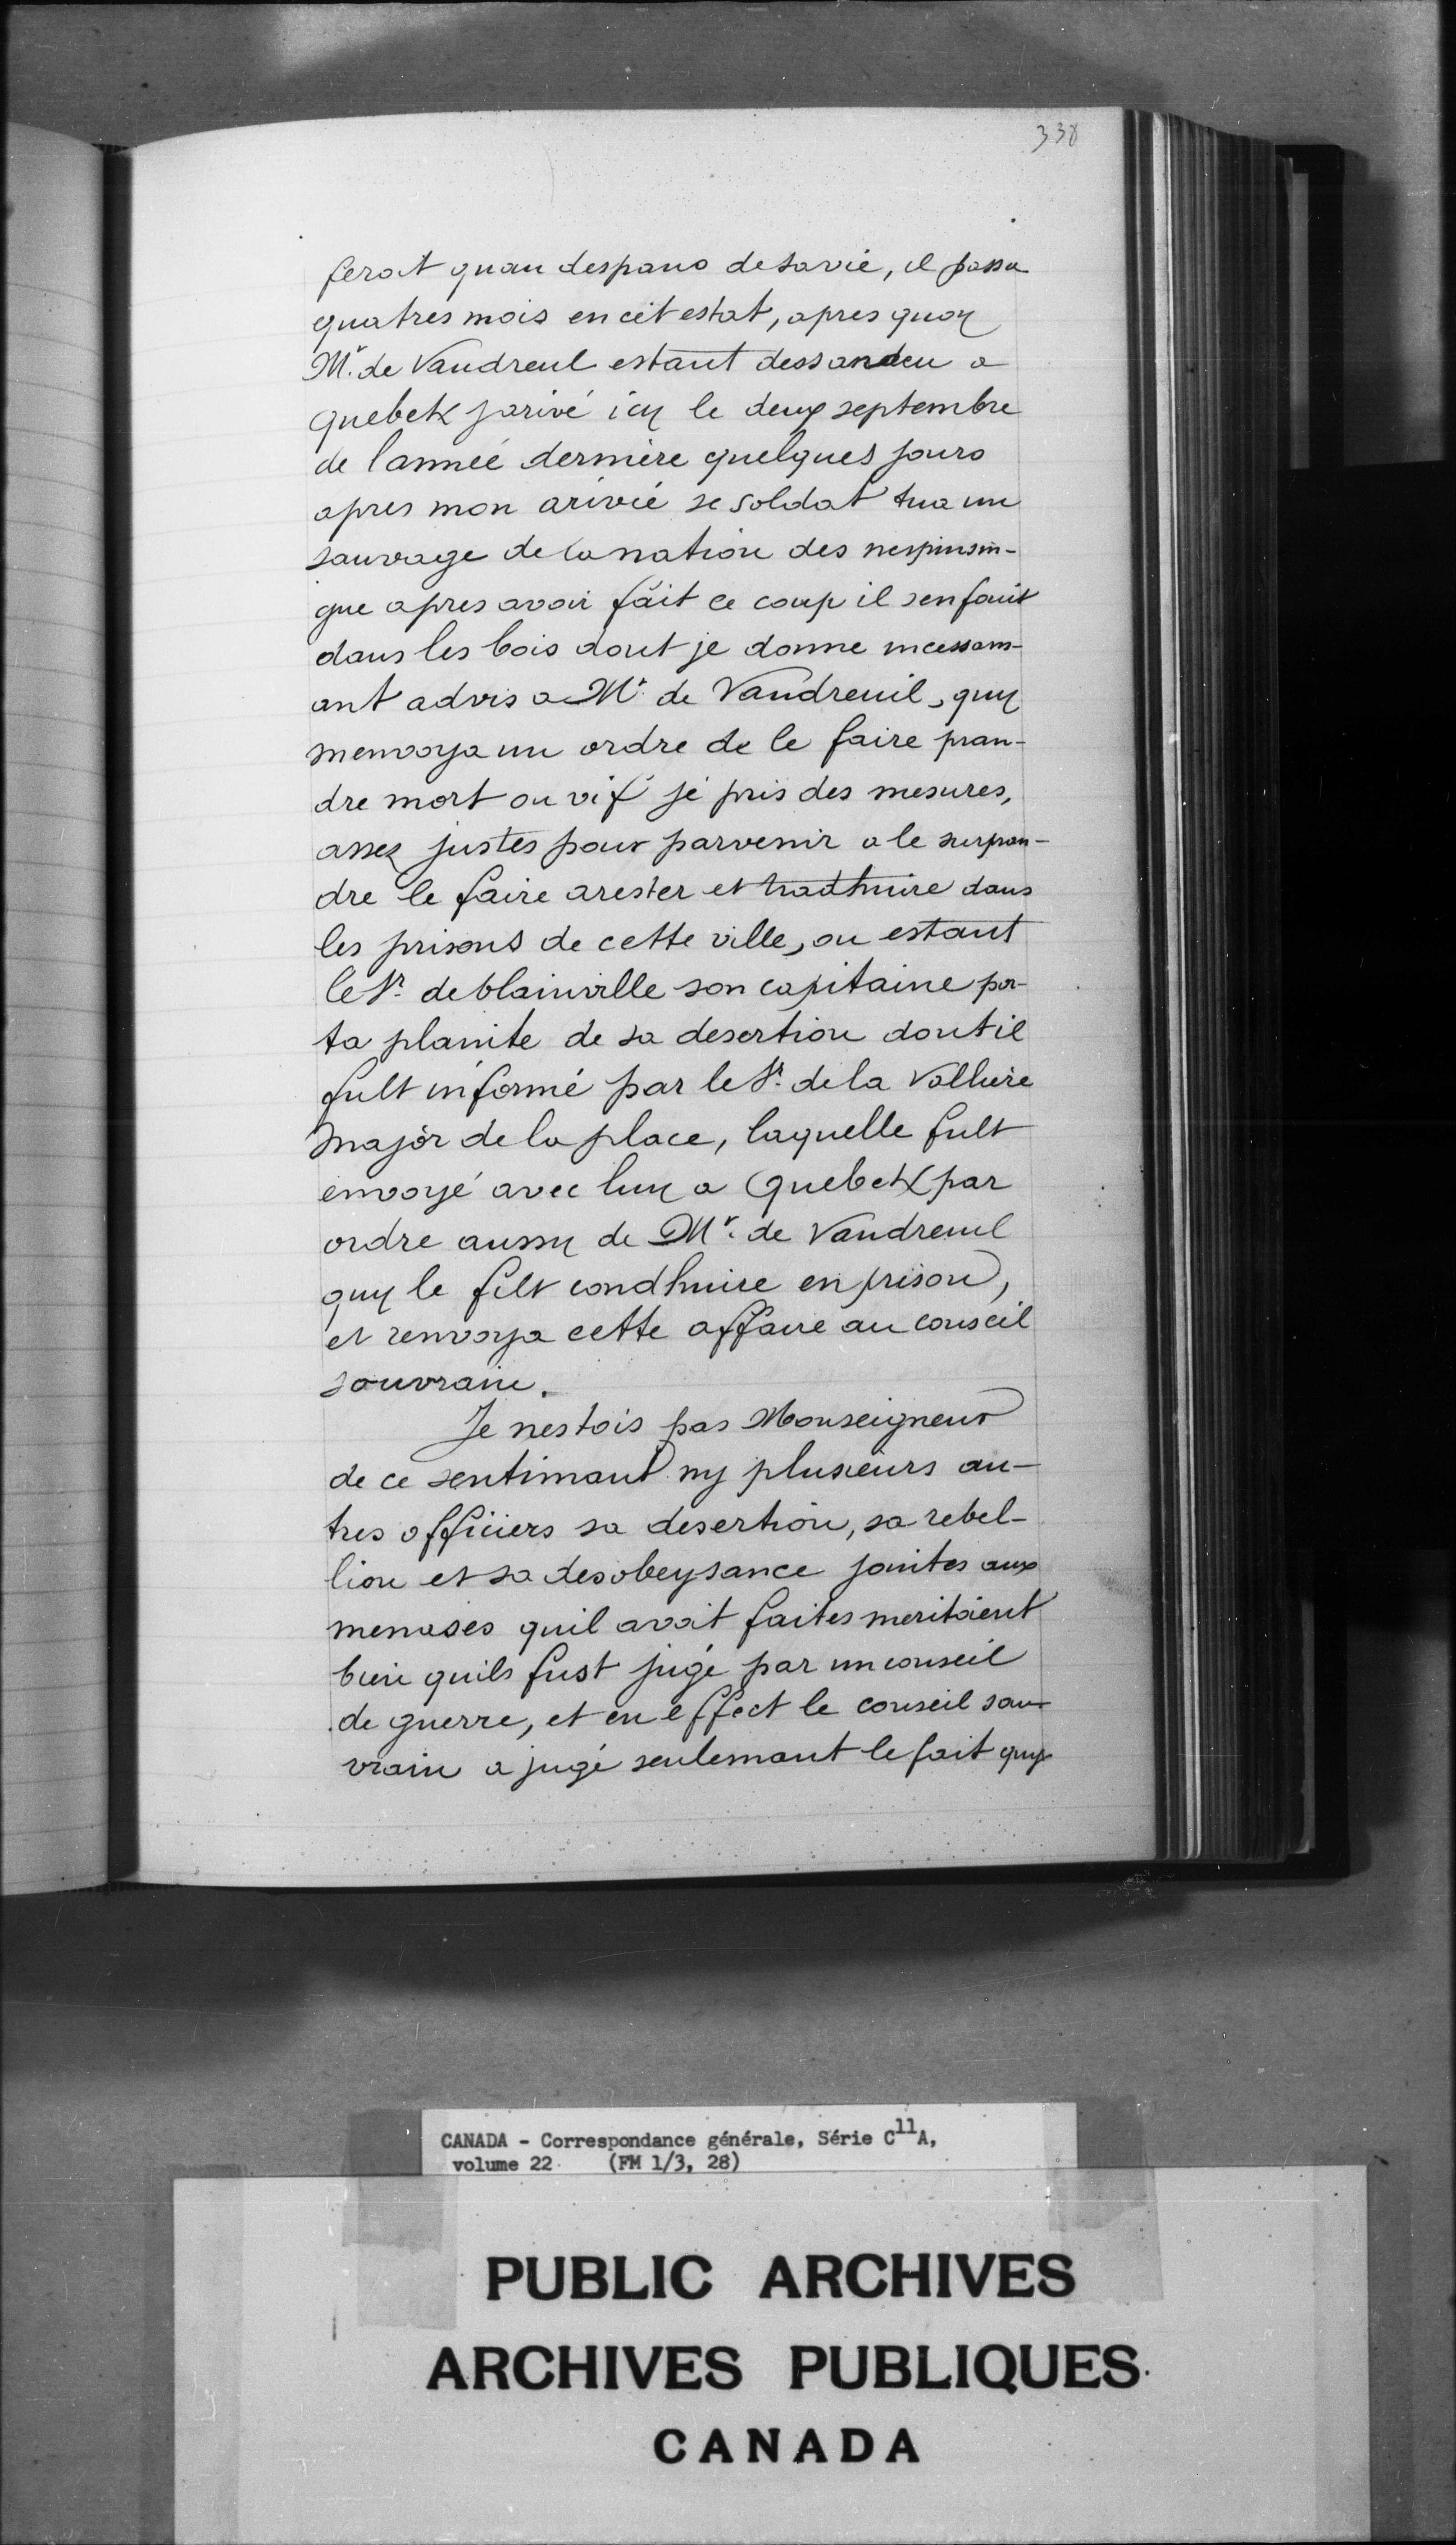 338
ferait quau despans de sa vie, il passa
quatres mois en cet estat, apres quoy
Mr. de Vaudreul estant dessandeu a
Quebek jarivé icy le deux septembre
de l'anneé derniere quelques jours
apres mon ariveé se soldat tua un
sauvage de la nation des nespinsin-
gue apres avoir fait ce coup il senfouit
dans les bois dont je donne incessam-
ant advis a Mr. de Vaudreuil, quy
menvoya un ordre de le faire pran-
dre mort ou vif jé pris des mesures,
assez justes pour parvenir a le surpran-
dre le faire arester et tradhuire dans
les prisons de cette ville, ou estant
le Sr. de blainville son capitaine por-
ta plainte de sa desertion dont il
fult informé par le Sr. de la Valliere
Major de la place, laquelle fult
envoyé avec luy a Quebek par
ordre aussy de Mr. de Vaudreuil
quy le filt condhuire en prison,
et renvoya cette affaire au conseil
souvrain.
Je nestois pas Monseigneur
de ce sentimant ny plusieurs au-
tres officiers sa desertion, sa rebel-
lion et sa desobeysance jointes aux
menases quil avait faites meritaient
bien quils fust jugé par un conseil
de guerre, et en effect le conseil sou-
vrain a jugé seulemant le fait quy
CANADA - Correspondance générale, Série C11A,
volume 22 (FM 1/3, 28)
PUBLIC ARCHIVES
ARCHIVES PUBLIQUES
CANADA